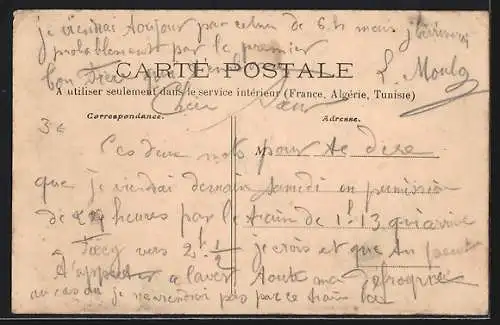 je viendrai toujour par celui de 6 h mais j'arriverai
probablement par le premier
bon
L. Moulo
CARTE POSTALE
A utiliser seulement dans le service intérieur (France, Algérie, Tunisie)
Chère Sœur
3€
Correspondance.
Adresse.
Ces deux mots pour te dire
M
que je viendrai demain samedi en permission
de 24 heures par le train de 1h 13 qui arrive
a vers 2h 1/2 je crois et que tu peut
a laver toute ma defroque
au cas où je ne viendrai pas par ce train la